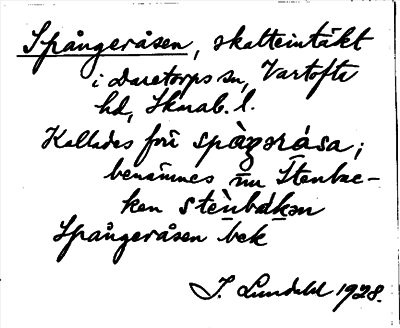 Spångeråsen, skatteintäkt
i Daretorps sn, Vartofta
hd, Skarab. l.
Kallades förr spàŋərɷ́sa;
benämnes nu Stenbac-
ken stèn̄bákən
Spångeråsen bek
J. Lundahl 1928.